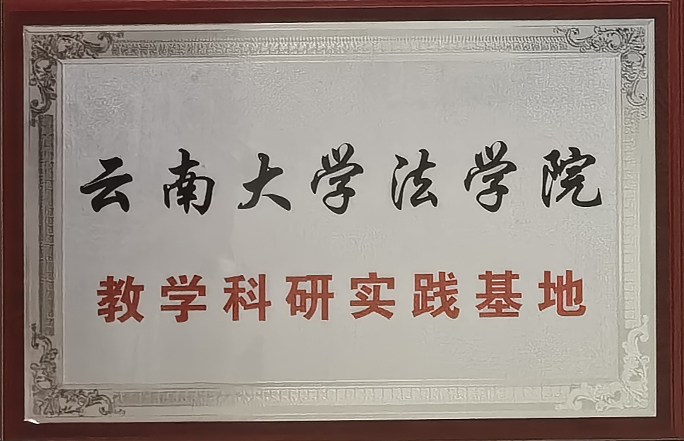 云南大学法学院
教学科研实践基地